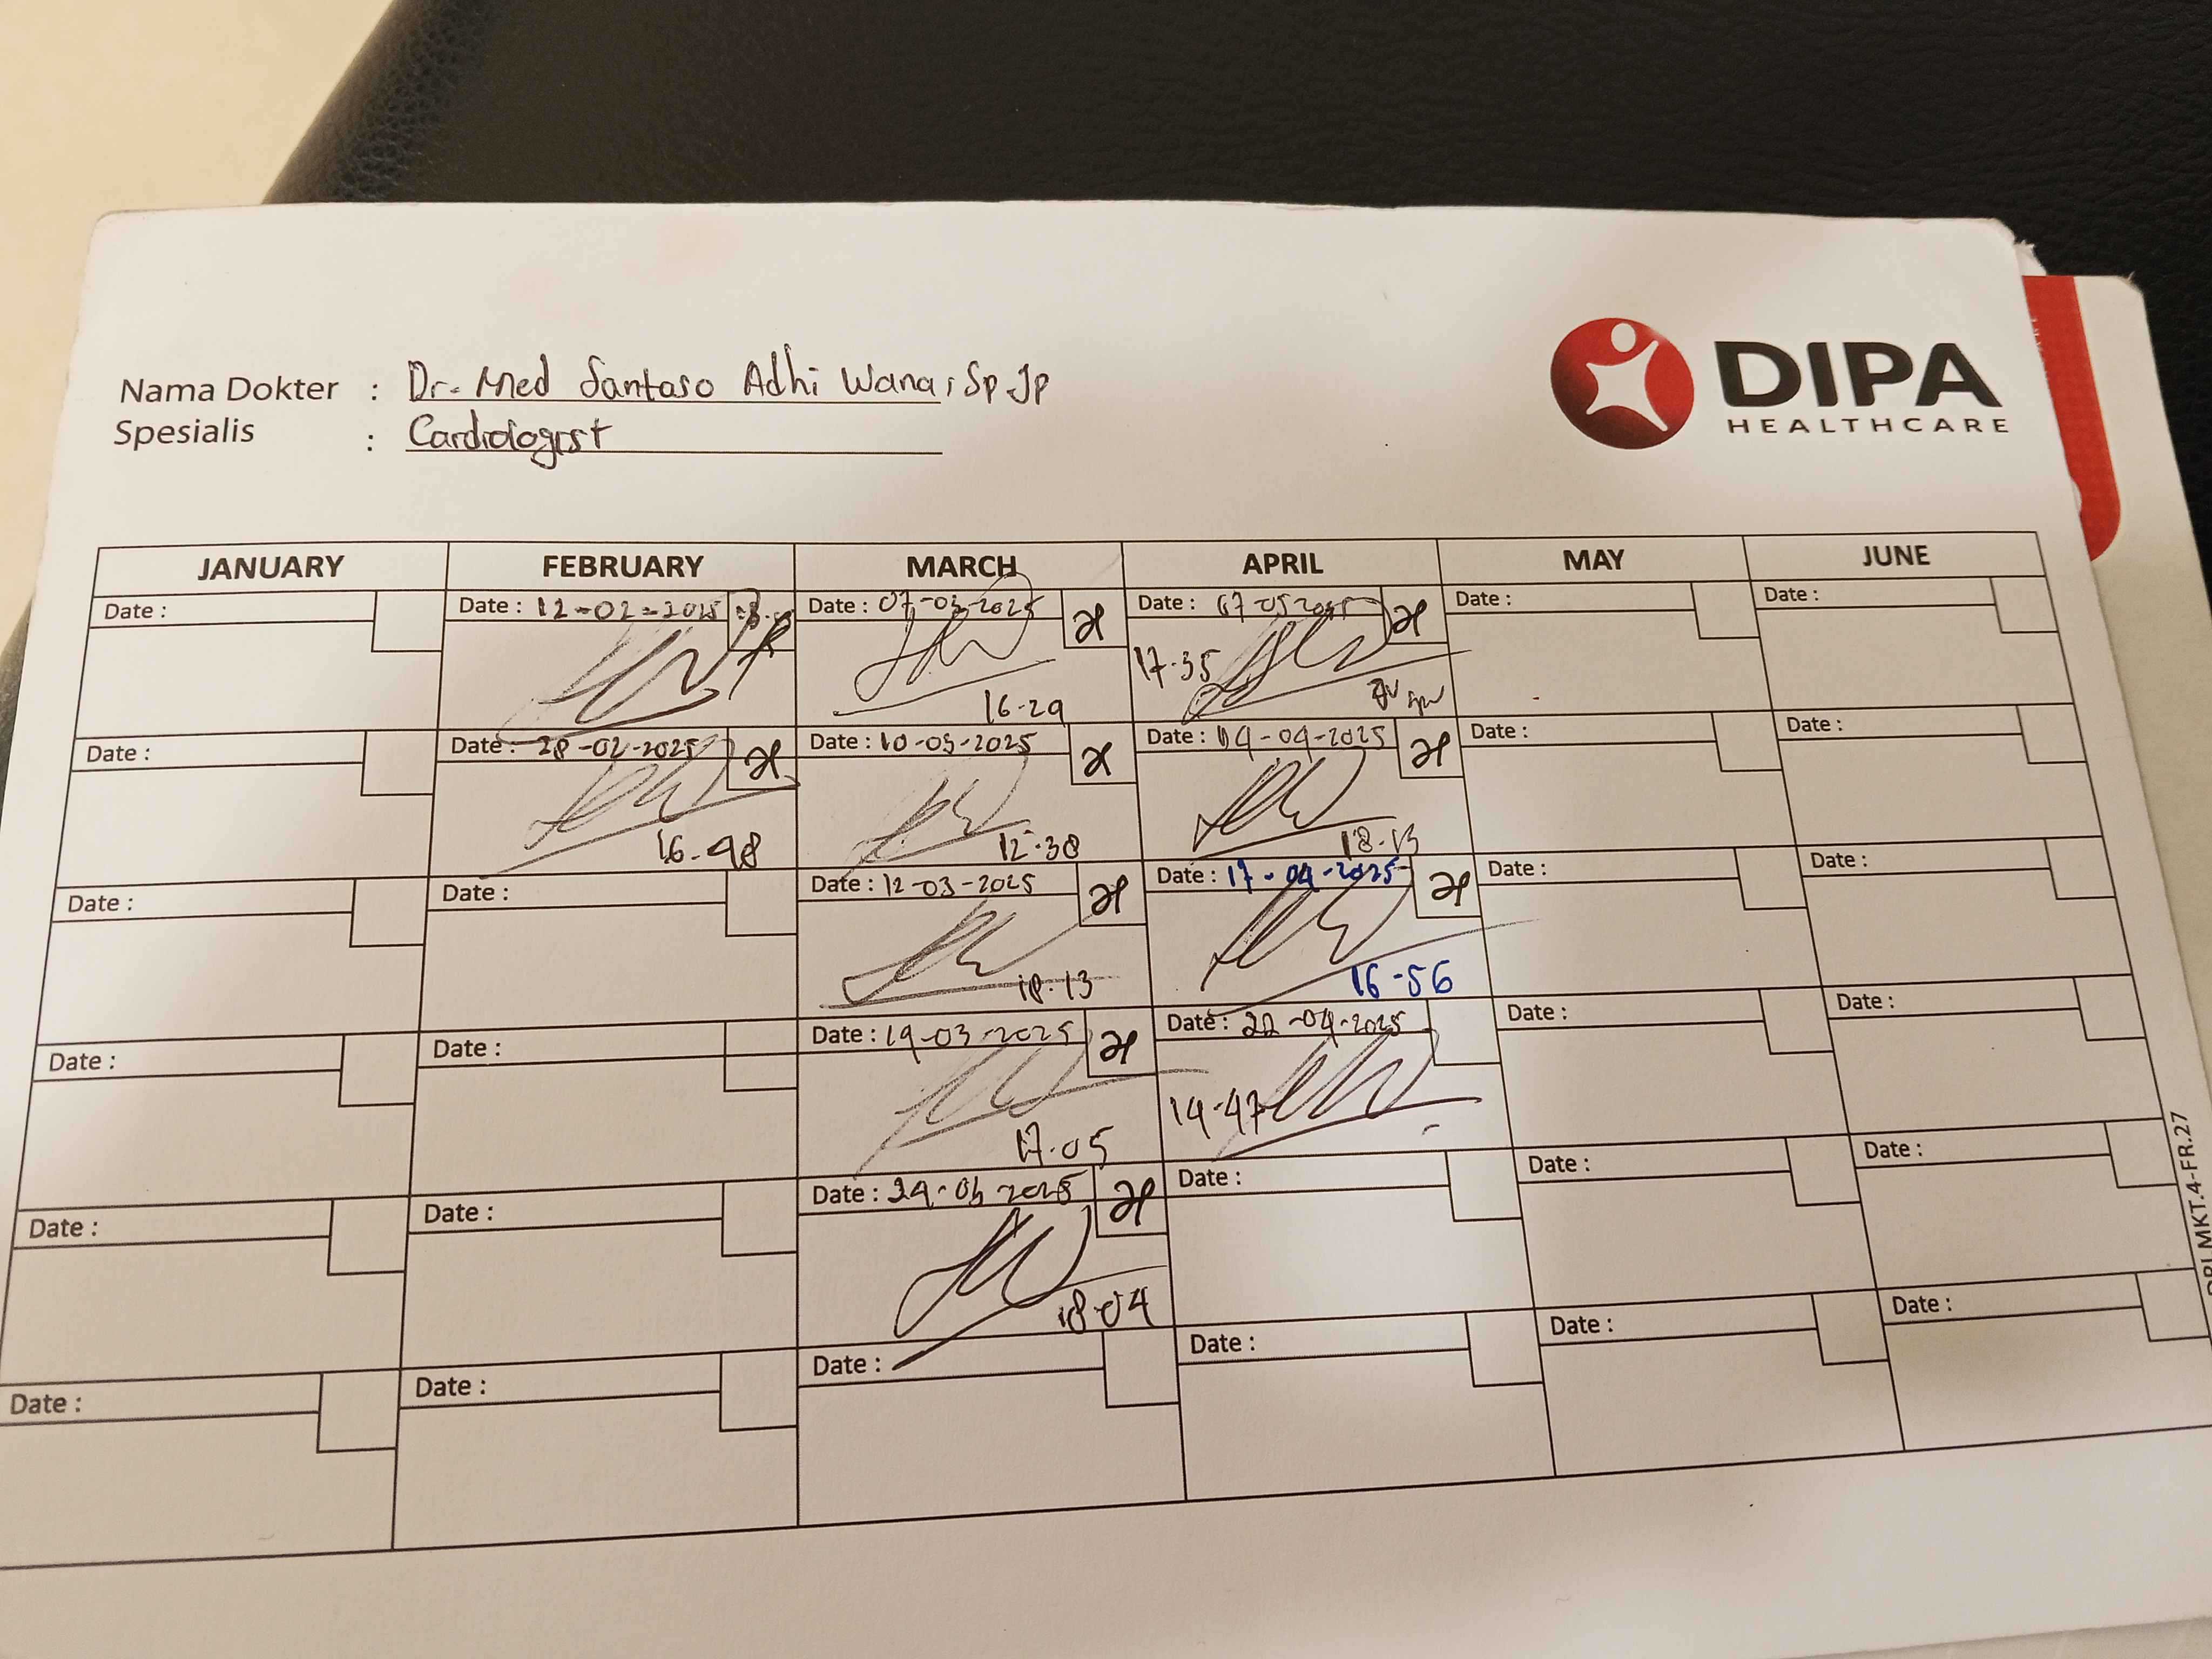 Nama Dokter : Dr. Med Santoso Adhi Wana, Sp.Jp
Spesialis : Cardiologist
DIPA
HEALTHCARE
JANUARY FEBRUARY MARCH APRIL MAY JUNE
Date : Date : 12-02-2025 Date : 07-03-2025 Date : Date : Date :
17-35
16-29
Date : Date : 28-02-2025 Date : 10-03-2025 Date : 04-04-2025 Date : Date :
16-48 12-38 18-13
Date : Date : Date : 12-03-2025 Date : 17-04-2025 Date : Date :
18-13 16-56
Date : Date : Date : 19-03-2025 Date : 22-04-2025 Date : Date :
14-47
17-05
Date : Date : Date : 24-03-2025 Date : Date : Date :
18-04
Date : Date : Date : Date : Date : Date :
MKT.4-FR.27